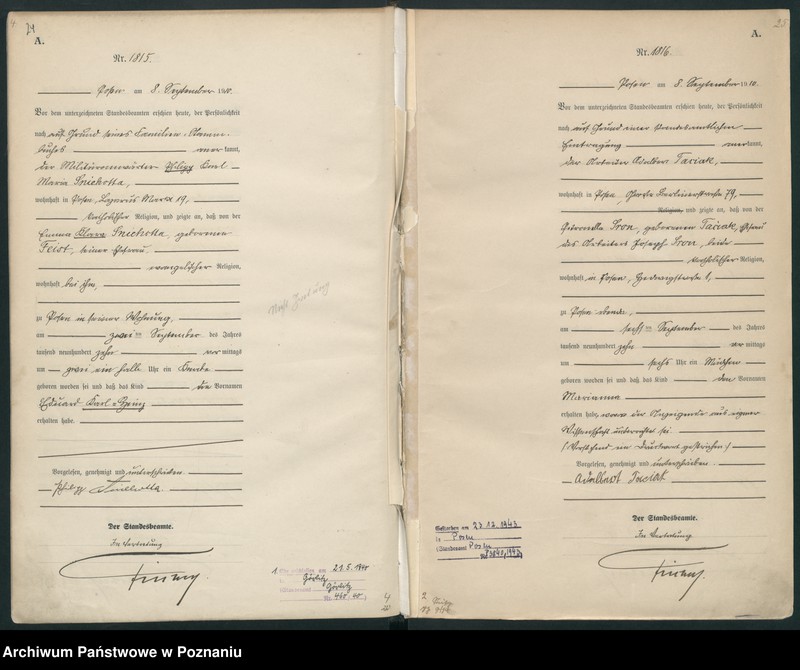 24
A.
Nr. 1815.
Posen am 8. September 1910.
Vor dem unterzeichneten Standesbeamten erschien heute, der Persönlichkeit
nach auf Grund seines Familien-Stamm-
buches anerkannt,
der Militäranwärter Philipp Karl
Maria Snickotta,
wohnhaft in Posen, 19,
katholischer Religion, und zeigte an, daß von der
Emma Klara Snickotta, geborenen
Feist, seiner Ehefrau,
evangelischer Religion,
wohnhaft bei ihm,
zu Posen in seiner Wohnung,
am zwei ten September des Jahres
tausend neunhundert zehn vor mittags
um zwei ein halb Uhr ein Knabe
geboren worden sei und daß das Kind die Vornamen
Eduard Karl-Heinz
erhalten habe.
Vorgelesen, genehmigt und unterschrieben
Philipp
Der Standesbeamte.
In Vertretung
21.5.1940
Görlitz
Görlitz
Nr. 460 40
25
A.
Nr. 1816.
Posen am 8. September 1910.
Vor dem unterzeichneten Standesbeamten erschien heute, der Persönlichkeit
nach auf Grund einer standesamtlichen
Eintragung anerkannt,
der Adalbert Taciak,
wohnhaft in Posen, 79,
Religion, und zeigte an, daß von der
Petronella Sron, geborenen Taciak, Ehefrau
des Arbeiters Joseph Sron, beide
katholischer Religion,
wohnhaft in Posen, 1,
zu Posen ebenda,
am sechs ten September des Jahres
tausend neunhundert zehn vor mittags
um sechs Uhr ein Mädchen
geboren worden sei und daß das Kind den Vornamen
Marianna
erhalten habe, wovon der Anzeigende aus eigener
Wissenschaft unterrichtet sei.
(Vorstehend ein Druckwort gestrichen)
Vorgelesen, genehmigt und unterschrieben
Adalbert Taciak
Der Standesbeamte.
In Vertretung
Gestorben am 23.12.1943
in Posen
Standesamt Posen
Archiwum Państwowe w Poznaniu